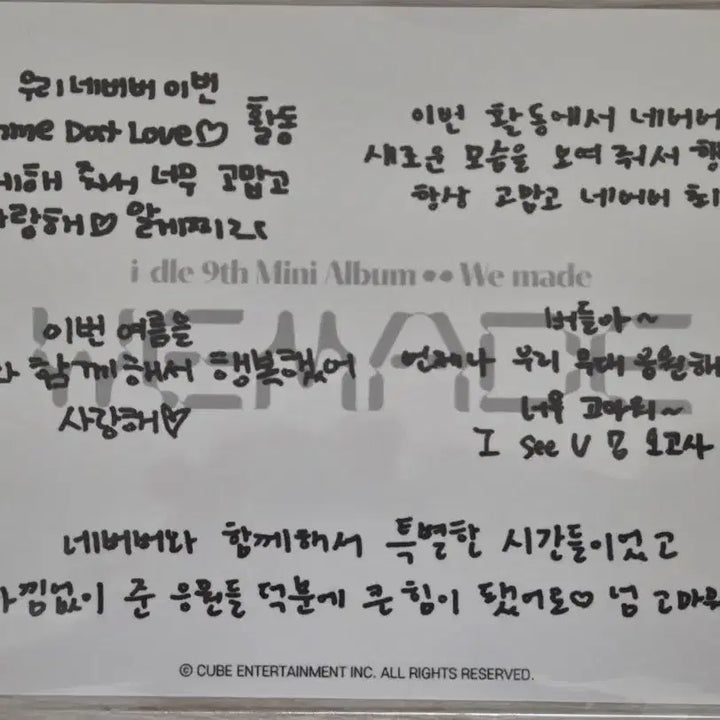 우리 네버버 이번
Dat Love♡ 활동
해 줘서 너무 고맙고
사랑해♡ 알게찌
이번 활동에서 네버버
새로운 모습을 보여 줘서
항상 고맙고 네버버 최
i dle 9th Mini Album •• We made
WEMADE
이번 여름을
함께해서 행복했어
사랑해♡
버들아~
언제나 우리 무대 응원해
너무 고마워~
I see U 몸 보고사
네버버와 함께해서 특별한 시간들이었고
아낌없이 준 응원들 덕분에 큰 힘이 됐어요♡ 넘 고마워
© CUBE ENTERTAINMENT INC. ALL RIGHTS RESERVED.